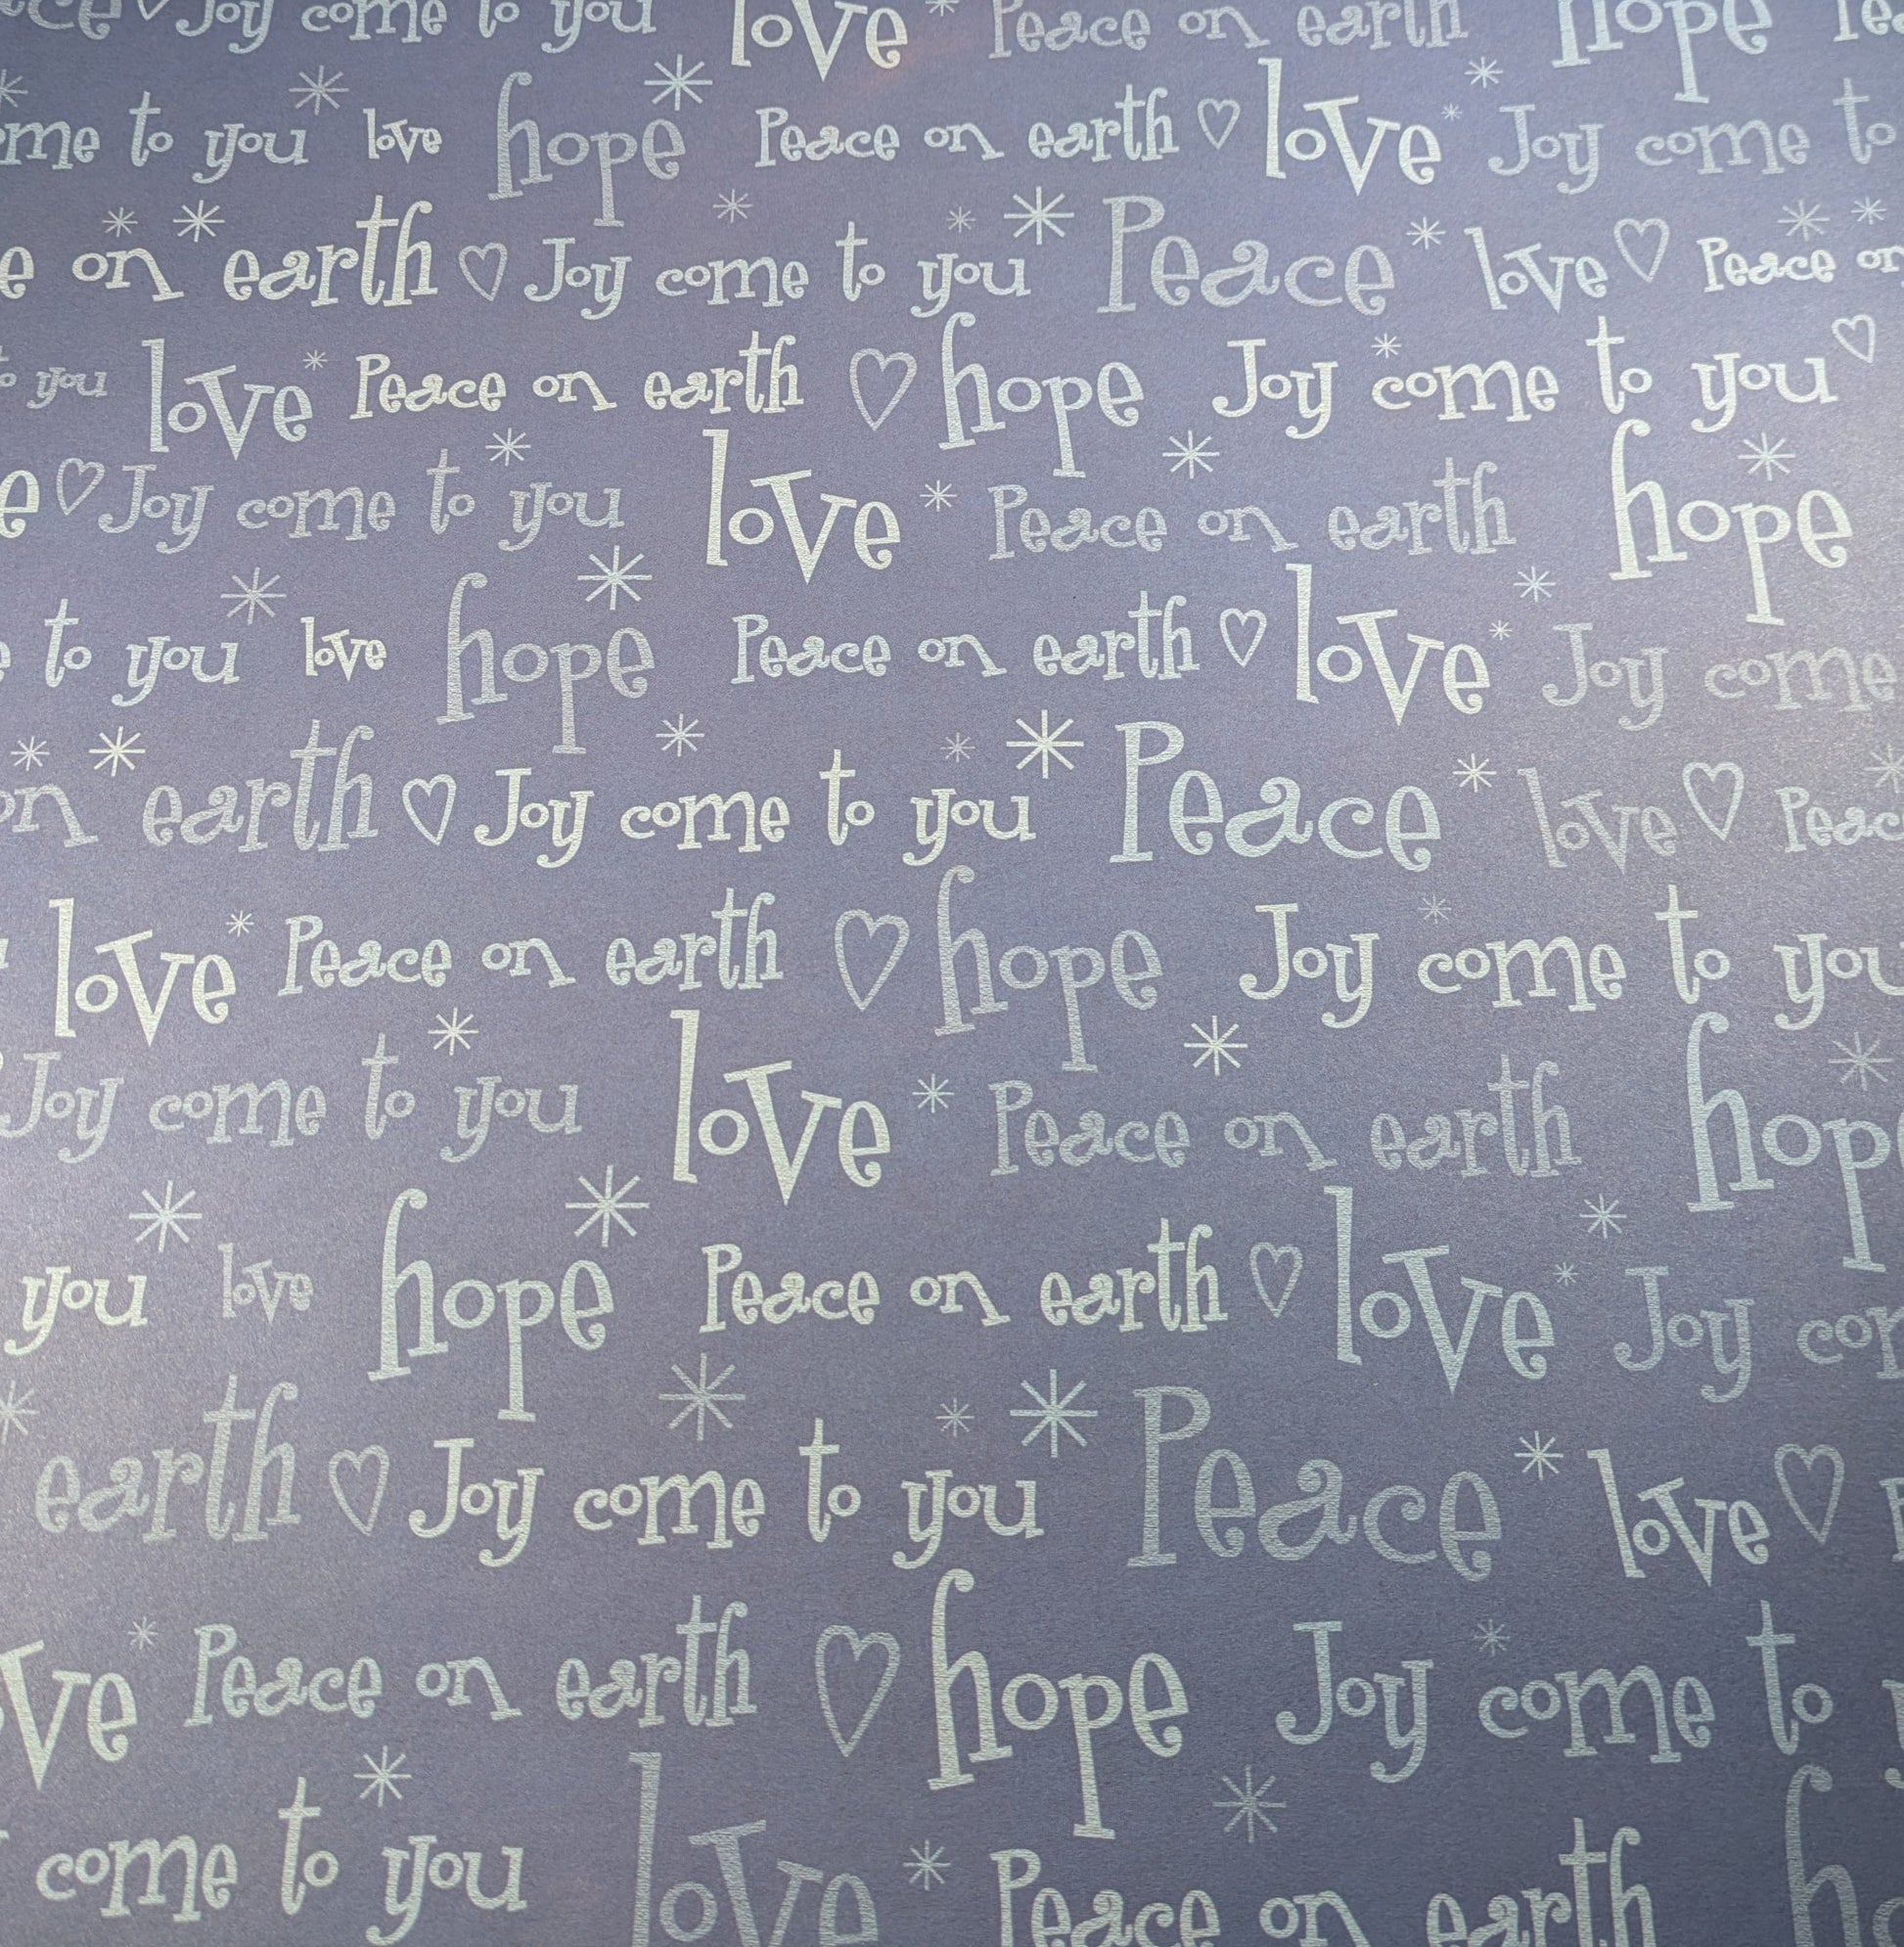 Joy come to you love Peace on earth hope
to you love hope Peace on earth love Joy come to
on earth Joy come to you Peace love Peace on
you love Peace on earth hope Joy come to you
Joy come to you love Peace on earth hope
to you love hope Peace on earth love Joy come
on earth Joy come to you Peace love Peac
love Peace on earth hope Joy come to you
Joy come to you love Peace on earth hop
you love hope Peace on earth love Joy co
earth Joy come to you Peace love
ve Peace on earth hope Joy come to
come to you love Peace on earth h